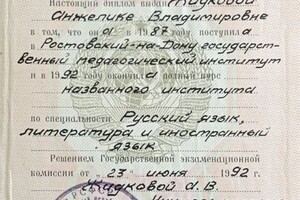 Настоящий диплом выдан Жидковой
Анжелике Владимировне
в том, что она в 1987 поступила
в Ростовский-на-Дону государст-
венный педагогический институт
и в 1992 окончила полный курс
названного института
по специальности Русский язык,
литература и иностранный
язык
Решением Государственной экзаменационной
комиссии от 23 июня 1992 г.
Жидковой А. В.